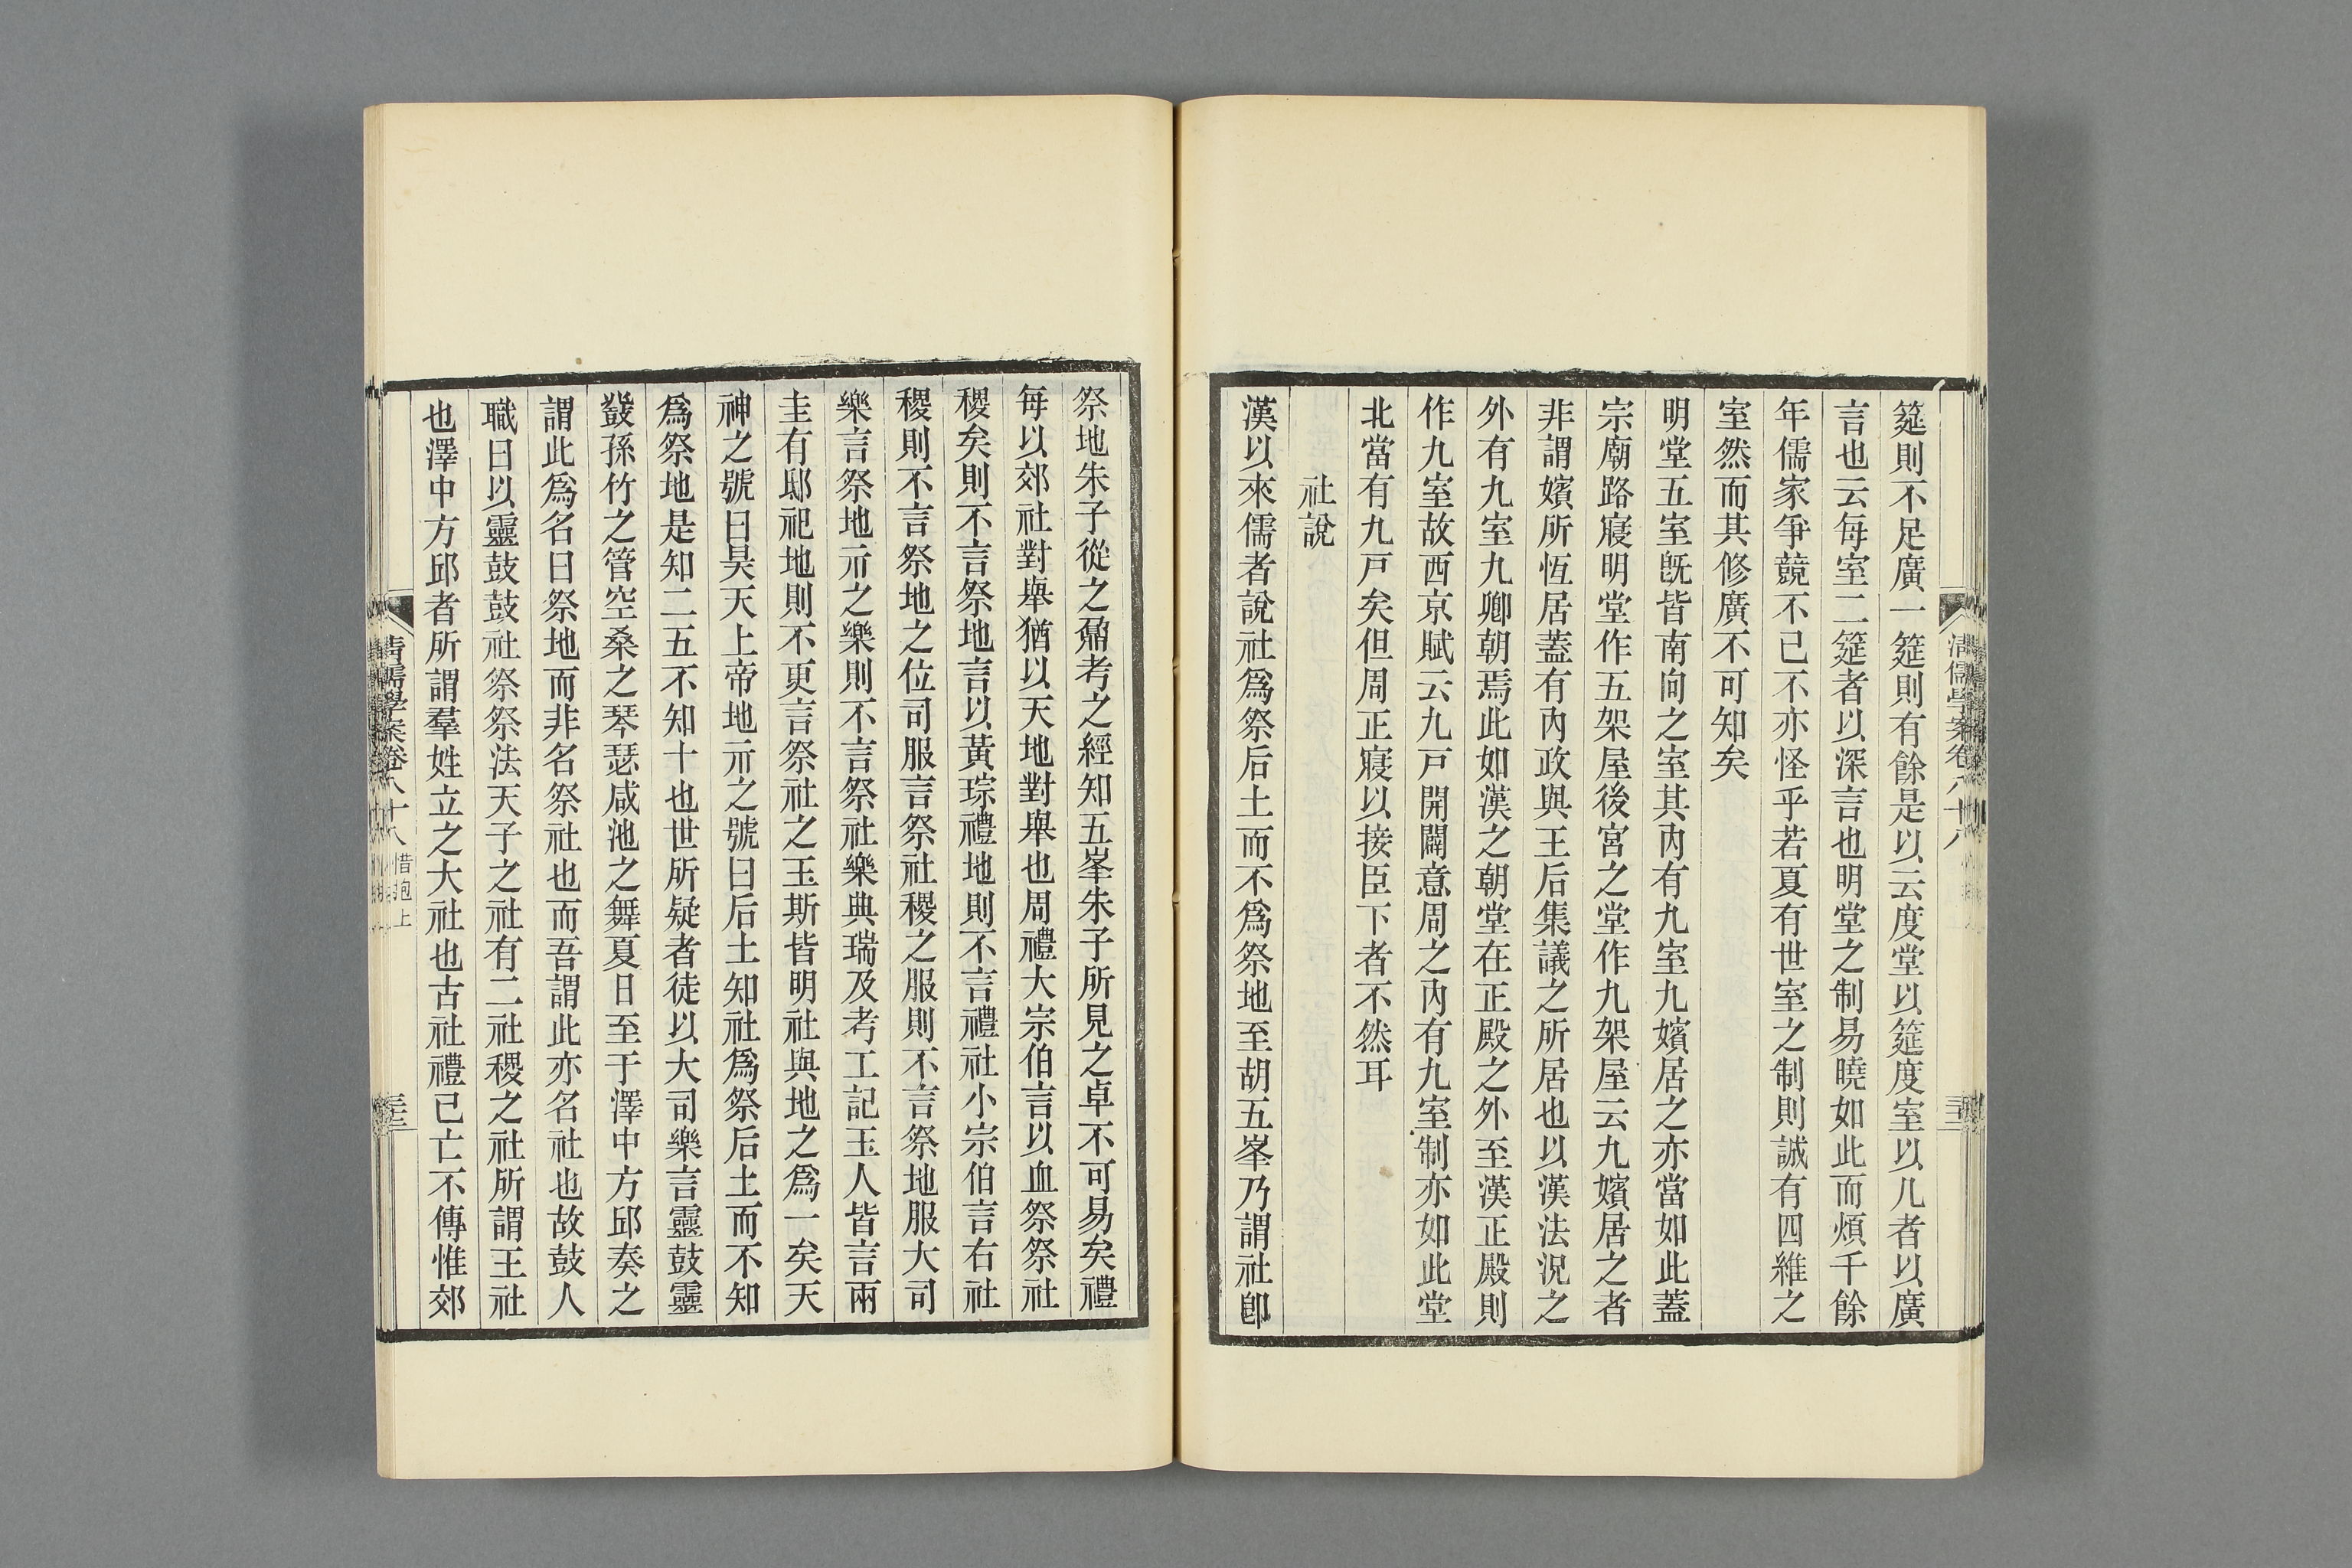 筵則不足廣一筵則有餘是以云度堂以筵度室以几者以廣
言也云每室二筵者以深言也明堂之制易曉如此而煩千餘
年儒家爭競不已不亦怪乎若夏有世室之制則誠有四維之
室然而其修廣不可知矣
明堂五室旣皆南向之室其內有九室九嬪居之亦當如此蓋
宗廟路寢明堂作五架屋後宮之堂作九架屋云九嬪居之者
非謂嬪所恆居蓋有內政與王后集議之所居也以漢法況之
外有九室九卿朝焉此如漢之朝堂在正殿之外至漢正殿則
作九室故西京賦云九戸開闢意周之內有九室制亦如此堂
北當有九戸矣但周正寢以接臣下者不然耳
社說
漢以來儒者說社爲祭后土而不爲祭地至胡五峯乃謂社卽
祭地朱子從之鼐考之經知五峯朱子所見之卓不可易矣禮
每以郊社對舉猶以天地對舉也周禮大宗伯言以血祭祭社
稷矣則不言祭地言以黃琮禮地則不言禮社小宗伯言右社
稷則不言祭地之位司服言祭社稷之服則不言祭地服大司
樂言祭地示之樂則不言祭社樂典瑞及考工記玉人皆言兩
圭有邸祀地則不更言祭社之玉斯皆明社與地之爲一矣天
神之號曰昊天上帝地示之號曰后土知社爲祭后土而不知
爲祭地是知二五不知十也世所疑者徒以大司樂言靈鼓靈
鼗孫竹之管空桑之琴瑟咸池之舞夏日至于澤中方邱奏之
謂此爲名曰祭地而非名祭社也而吾謂此亦名社也故鼓人
職曰以靈鼓鼓社祭祭法天子之社有二社稷之社所謂王社
也澤中方邱者所謂羣姓立之大社也古社禮已亡不傳惟郊
清儒學案卷八十八 惜抱上